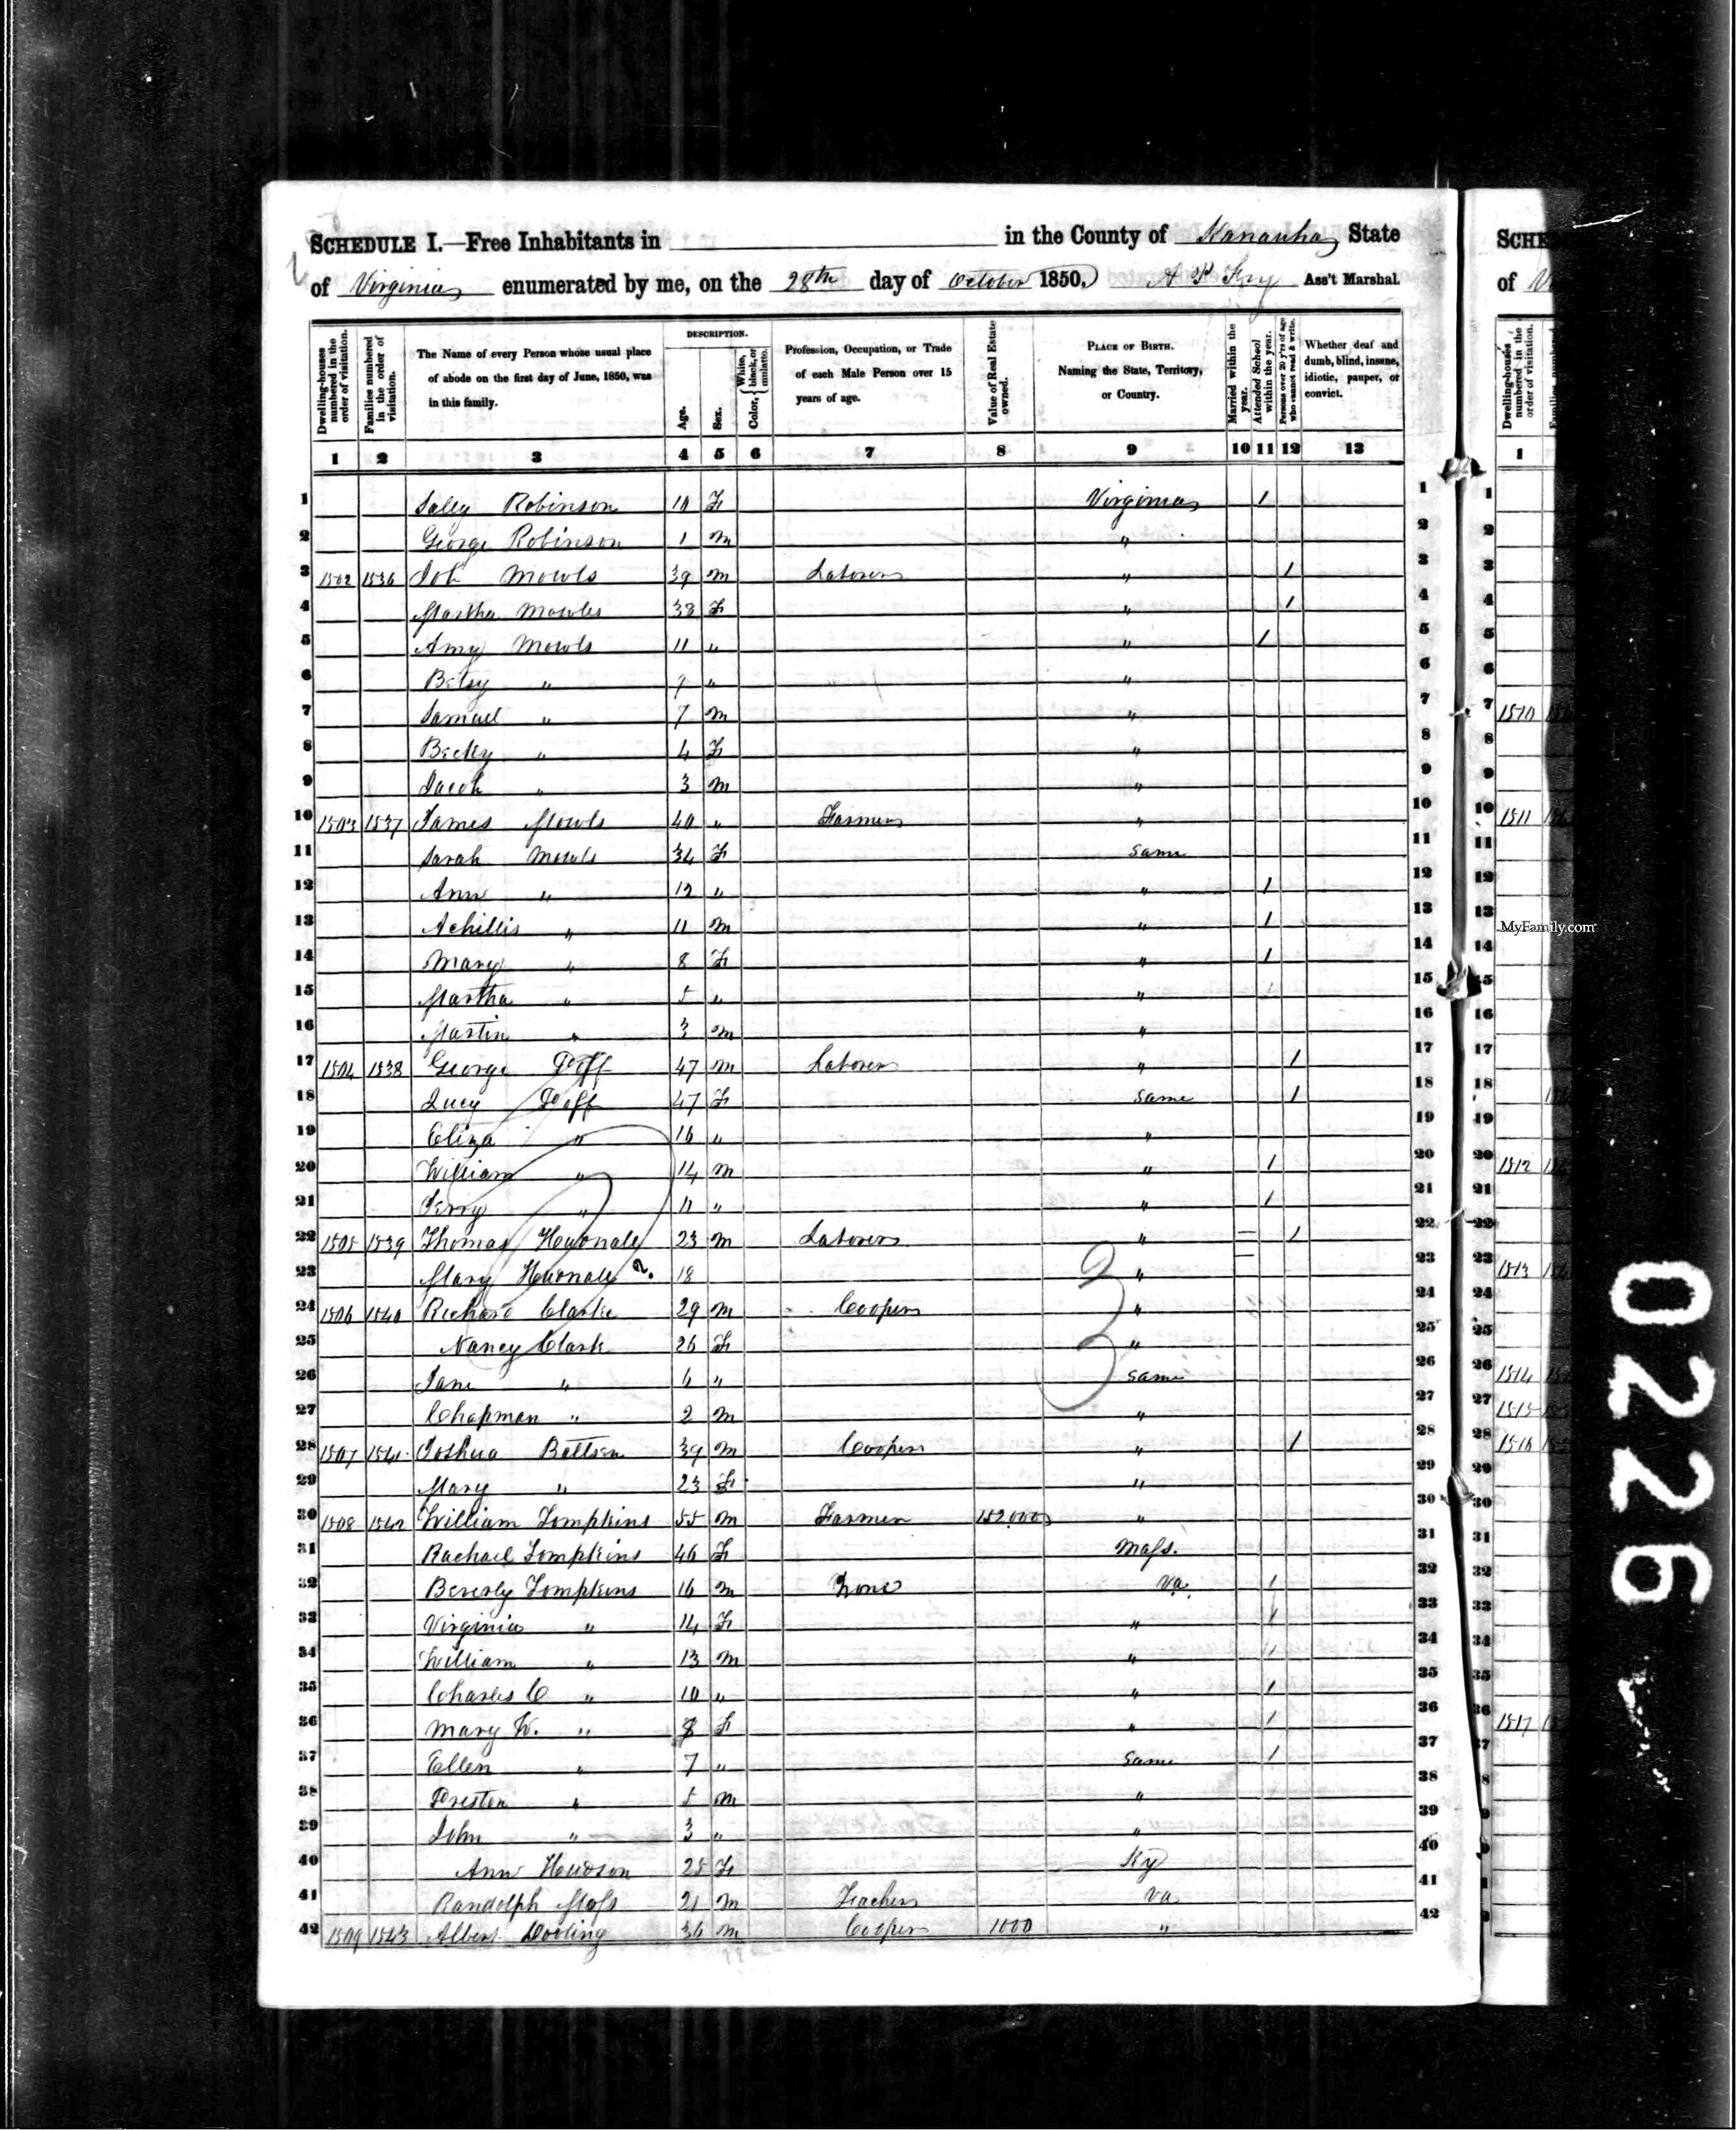 SCHEDULE I.—Free Inhabitants in in the County of Kanawha State
of Virginia enumerated by me, on the 28th day of October 1850. A P Fry Ass't Marshal.
Dwelling-houses numbered in the order of visitation.
Families numbered in the order of visitation.
The Name of every Person whose usual place of abode on the first day of June, 1850, was in this family.
DESCRIPTION.
Age.
Sex.
Color, { White, black, or mulatto.
Profession, Occupation, or Trade of each Male Person over 15 years of age.
Value of Real Estate owned.
PLACE OF BIRTH. Naming the State, Territory, or Country.
Married within the year.
Attended School within the year.
Persons over 20 y'rs of age who cannot read & write.
Whether deaf and dumb, blind, insane, idiotic, pauper, or convict.
1 2 3 4 5 6 7 8 9 10 11 12 13
1 Saley Robinson 10 F Virginia / 1
2 George Robinson 1 M " 2
3 1502 1536 Job Mowls 39 M Laborer " / 3
4 Martha Mowles 38 F " / 4
5 Amy Mowls 11 " " / 5
6 Betsy " 9 " " 6
7 Samuel " 7 M " 7
8 Becky " 4 F " 8
9 Jacob " 3 M " 9
10 1503 1537 James Mowls 40 " Farmer " 10
11 Sarah Mowls 34 F Same 11
12 Ann " 12 " " / 12
13 Achillis " 11 M " / 13
14 Mary " 8 F " / 14
15 Martha " 5 " " 15
16 Martin " 3 M " 16
17 1504 1538 George Goff 47 M Laborer " / 17
18 Lucy Goff 47 F Same / 18
19 Eliza " 16 " " 19
20 William " 14 M " / 20
21 Perry " 11 " " / 21
22 1505 1539 Thomas 23 M Laborer " / 22
23 Mary ?. 18 " 23
24 1506 1540 Richard Clarke 29 M Cooper " 24
25 Nancy Clark 26 F " 25
26 Jane " 6 " Same 26
27 Chapman " 2 M " 27
28 1507 1541 Joshua 39 M Cooper " / 28
29 Mary " 23 F " 29
30 1508 1542 William Tompkins 55 M Farmer 152000 " 30
31 Rachael Tompkins 46 F Mass. 31
32 Beverly Tompkins 16 M None Va. / 32
33 Virginia " 14 F " / 33
34 William " 13 M " / 34
35 Charles C " 10 " " / 35
36 Mary W. " 8 F " / 36
37 Ellen " 7 " Same / 37
38 Preston " 5 M " 38
39 John " 3 " " 39
40 Ann Hudson 25 F Ky 40
41 Randolph Moss 21 M Teacher Va 41
42 1509 1543 Albert Dooling 36 M Cooper 1000 " 42
SCHE
of Vi
Dwelling-houses numbered in the order of visitation.
1
1510
1511
1512
1513
1514
1515
1516
1517
MyFamily.com
0226